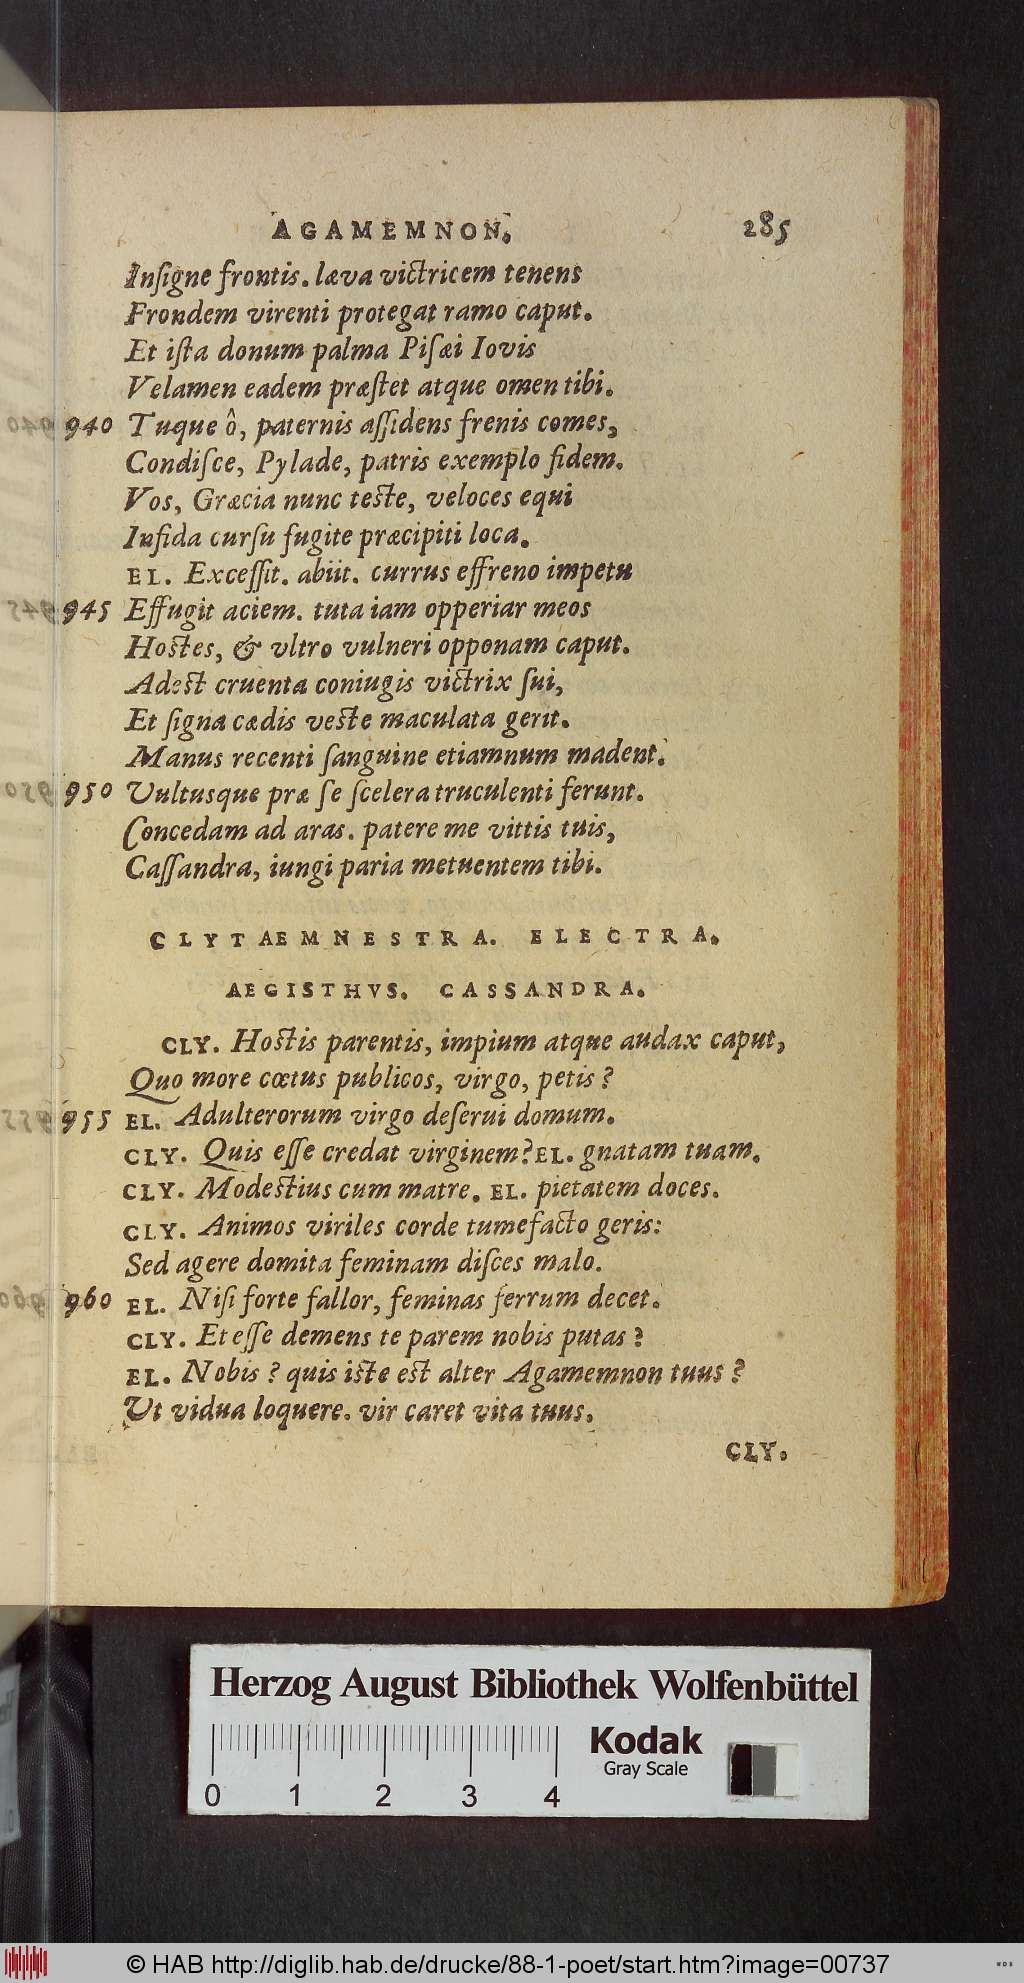 AGAMEMNON. 285
Inſigne frontis. læva victricem tenens
Frondem virenti protegat ramo caput.
Et iſta donum palma Piſæi Iovis
Velamen eadem præſtet atque omen tibi.
940 Tuque ô, paternis aſſidens frenis comes,
Condiſce, Pylade, patris exemplo fidem.
Vos, Græcia nunc teſte, veloces equi
Infida curſu fugite præcipiti loca.
EL. Exceſſit. abiit. currus effreno impetu
945 Effugit aciem. tuta iam opperiar meos
Hoſtes, & vltro vulneri opponam caput.
Adeſt cruenta coniugis victrix ſui,
Et ſigna cædis veſte maculata gerit.
Manus recenti ſanguine etiamnum madent.
950 Vultusque præ ſe ſcelera truculenti ferunt.
Concedam ad aras. patere me vittis tuis,
Caſſandra, iungi paria metuentem tibi.
CLYTAEMNESTRA. ELECTRA.
AEGISTHVS. CASSANDRA.
CLY. Hoſtis parentis, impium atque audax caput,
Quo more cœtus publicos, virgo, petis?
955 EL. Adulterorum virgo deſerui domum.
CLY. Quis eſſe credat virginem? EL. gnatam tuam.
CLY. Modeſtius cum matre. EL. pietatem doces.
CLY. Animos viriles corde tumefacto geris:
Sed agere domita feminam diſces malo.
960 EL. Niſi forte fallor, feminas ferrum decet.
CLY. Et eſſe demens te parem nobis putas?
EL. Nobis? quis iſte eſt alter Agamemnon tuus?
Ut vidua loquere. vir caret vita tuus.
CLY.
Herzog August Bibliothek Wolfenbüttel
Kodak
Gray Scale
0 1 2 3 4
© HAB http://diglib.hab.de/drucke/88-1-poet/start.htm?image=00737